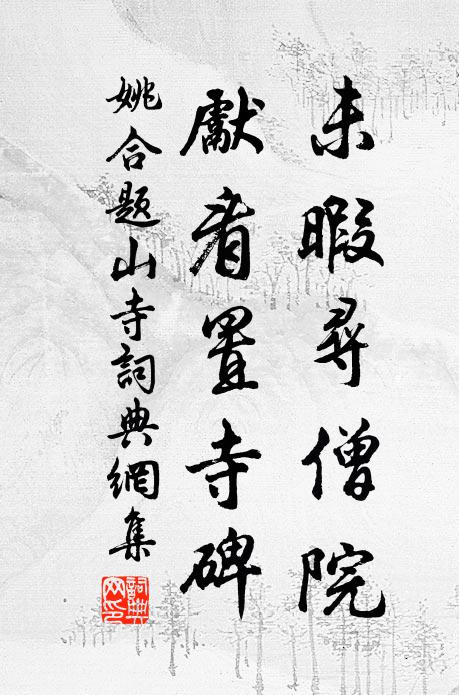 未暇尋僧院
獻看置寺碑
姚合题山寺詞典網集
詞典网印